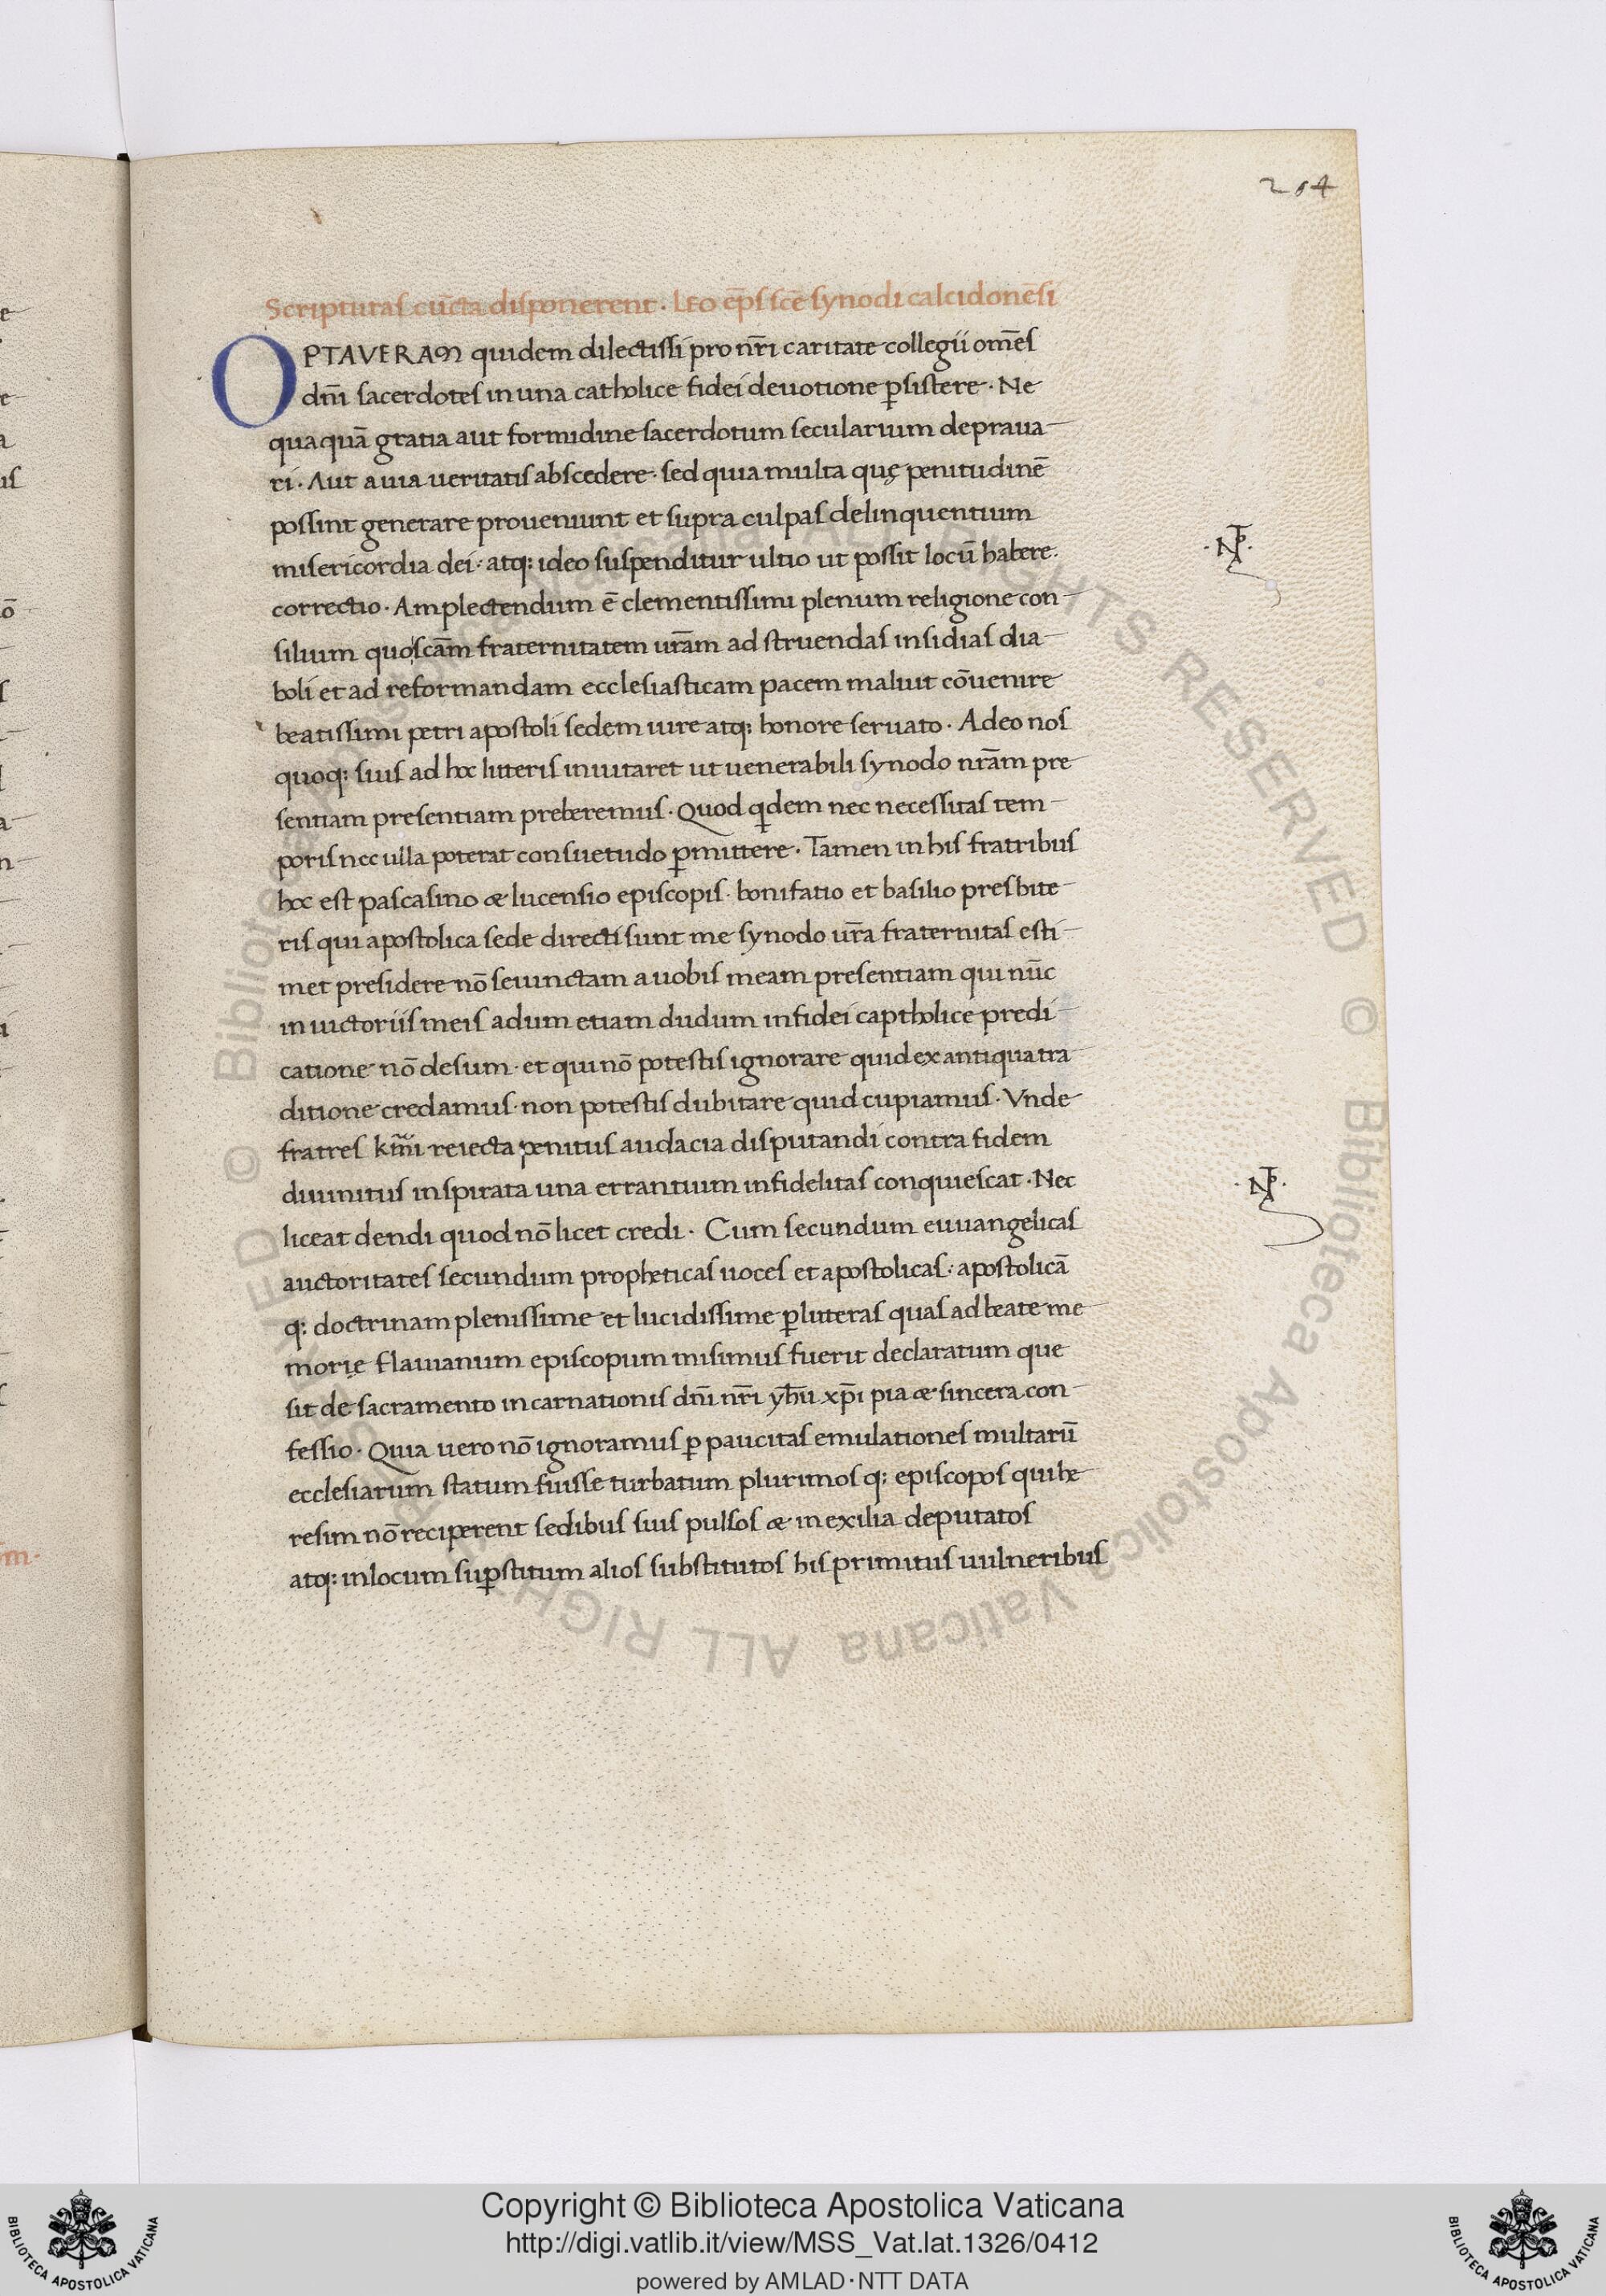 204
Scripturas cūcta disponerent. Leo ep̄s sc̄e synodi calcidonēsi
OPTAVERAM quidem dilectissi pro nr̄i caritate collegii om̄es
dn̄i sacerdotes in una catholice fidei deuotione ꝑsistere. Ne
qua quā gratia aut formidine sacerdotum secularium depraua
ri. Aut a uia ueritatis abscedere. sed quia multa quę penitudinē
possint generare proueniunt et supra culpas delinquentium
misericordia dei: atq: ideo suspenditur ultio ut possit locū habere.
correctio. Amplectendum ē clementissimi plenum religione con
silium quo scām fraternitatem ur̄am ad struendas insidias dia
boli et ad reformandam ecclesiasticam pacem maluit cōuenire
beatissimi petri apostoli sedem iure atq: honore seruato. Adeo nos
quoq: suis ad hoc litteris inuitaret ut uenerabili synodo nr̄am pre
sentiam presentiam preberemus. Quod qⁱdem nec necessitas tem
poris nec ulla poterat consuetudo ꝑmittere. Tamen in his fratribus
hoc est pascasino æ lucensio episcopis. bonifatio et basilio presbite
ris qui apostolica sede directi sunt me synodo ur̄a fraternitas esti
met presidere nō seiunctam a uobis meam presentiam qui nūc
in uictoriis meis adum etiam dudum in fidei captholice predi
catione nō desum. et qui nō potestis ignorare quid ex antiqua tra
ditione credamus. non potestis dubitare quid cupiamus. Vnde
fratres km̄i reiecta penitus audacia disputandi contra fidem
diuinitus inspirata una errantium infidelitas conquiescat. Nec
liceat dendi quod nō licet credi. Cum secundum euuangelicas
auctoritates secundum propheticas uoces et apostolicas: apostolicā
q: doctrinam plenissime et lucidissime ꝑ litteras quas ad beate me
morię flauianum episcopum misimus fuerit declaratum que
sit de sacramento incarnationis dn̄i nr̄i yh̄u xp̄i pia æ sincera con
fessio. Quia uero nō ignoramus ꝑ paucitas emulationes multarū
ecclesiarum statum fuisse turbatum plurimos q: episcopos qui he
resim nō reciperent sedibus suis pulsos æ in exilia deputatos
atq: in locum suꝑstitum alios substitutos his primitus uulneribus
Copyright © Biblioteca Apostolica Vaticana
http://digi.vatlib.it/view/MSS_Vat.lat.1326/0412
powered by AMLAD·NTT DATA
BIBLIOTECA APOSTOLICA VATICANA
BIBLIOTECA APOSTOLICA VATICANA
© Biblioteca Apostolica Vaticana ALL RIGHTS RESERVED © Biblioteca Apostolica Vaticana ALL RIGHTS RESERVED